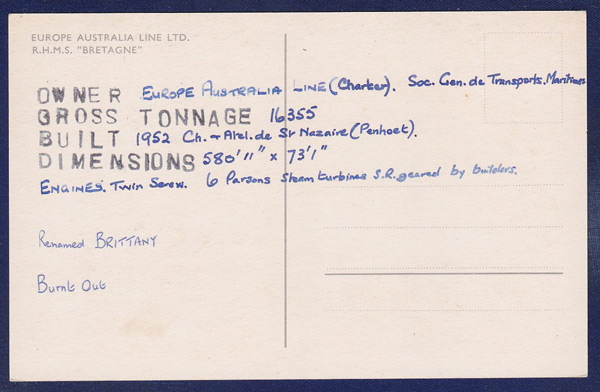 EUROPE AUSTRALIA LINE LTD.
R.H.M.S. "BRETAGNE"
OWNER EUROPE AUSTRALIA LINE (Charter). Soc. Gen. de Transports. Maritimes
GROSS TONNAGE 16355
BUILT 1952 Ch. + Atel. de St Nazaire (Penhoet).
DIMENSIONS 580' 11" x 73' 1"
ENGINES. Twin Screw. 6 Parsons Steam turbines S.R. geared by builders.
Renamed BRITTANY
Burnt Out